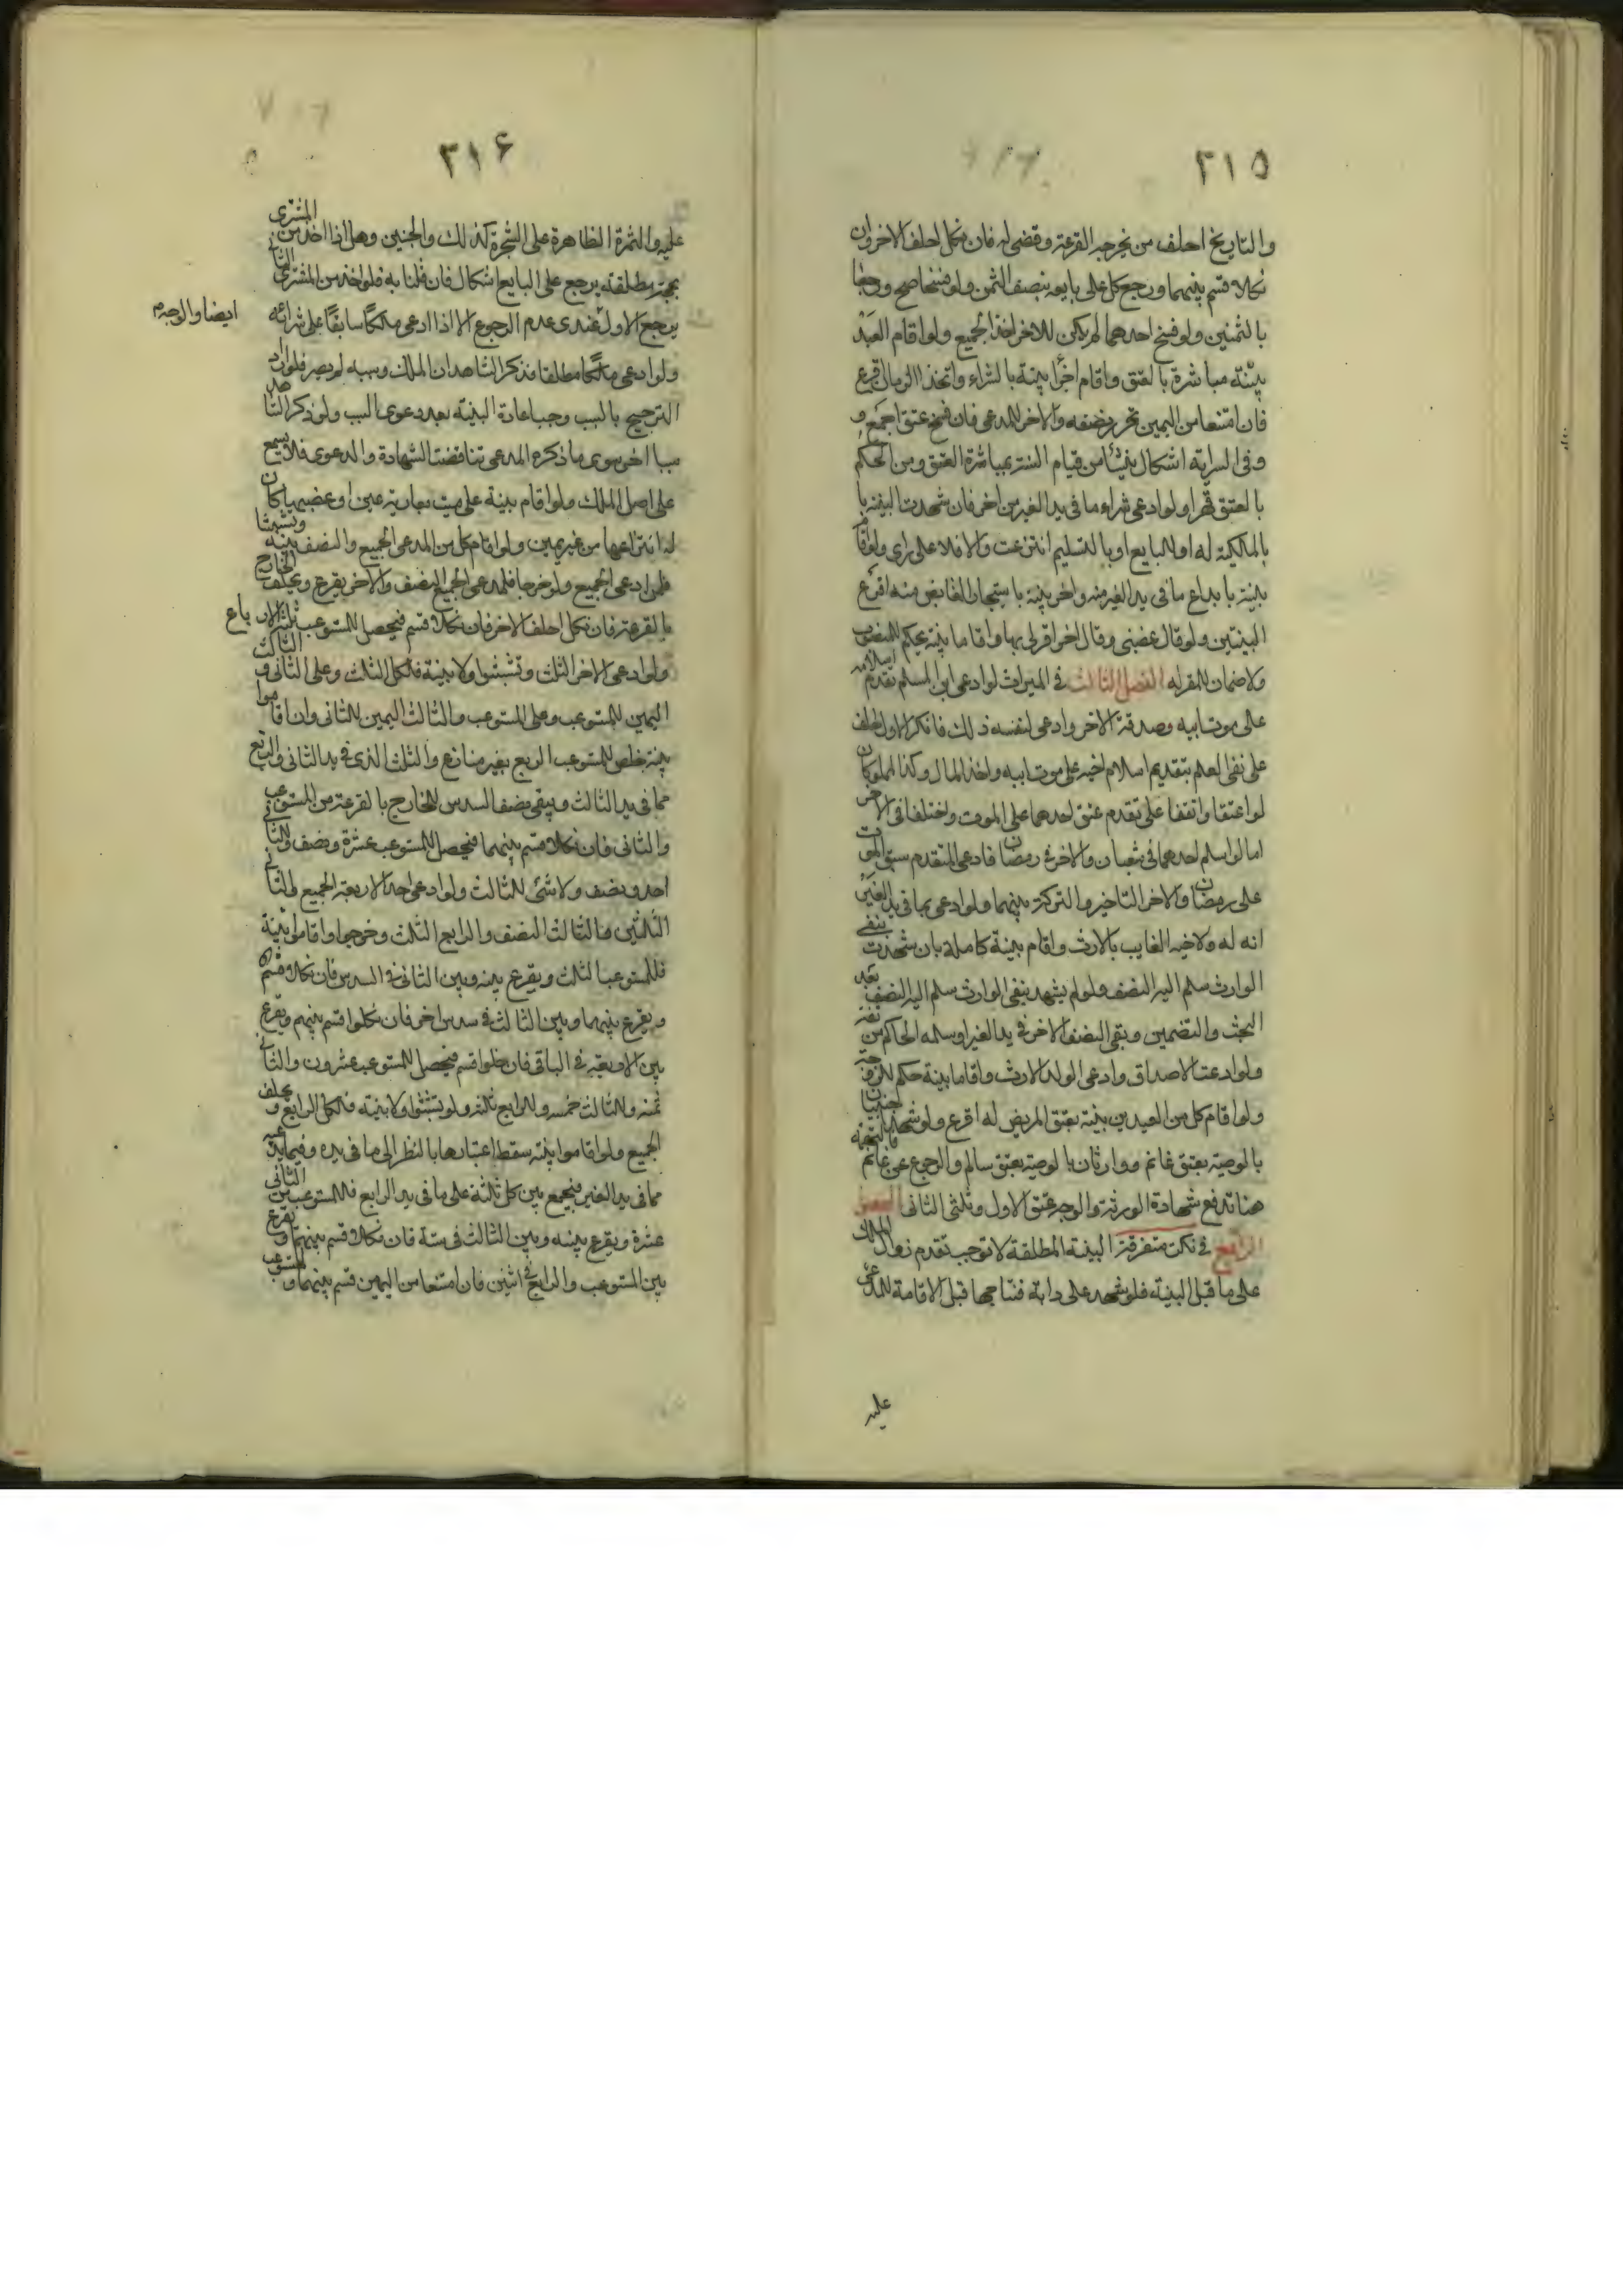 ٣١٥
والتاريخ احلف من يخرجه القرعة وقضى له فان نكل احلف الاخر وان
نكلا قسم بينهما ورجع كل على بايعه بنصف الثمن ولو فسخا صح ورجعا
بالثمنين ولو فسخ احدهما لم يكن للاخر اخذ الجميع ولو اقام العبد
بينة مباشرة بالعتق واقام اخر بينة بالشراء واتحد الزمان اقرع
فان امتنعا من اليمين تحرر نصفه والاخر للمدعى فان فسخ عتق اجمع و
وفى السراية اشكال ينشأ من قيام البينة بمباشرة العتق ومن الحكم
بالعتق قهرا ولو ادعى شراء ما فى يد الغير من اخر فان شهدت البينة با
بالملكية له او للبايع او بالتسليم انتزعت والا فلا على راى ولو اقا
بينة بايداع ما فى يد الغير منه واخر بينة باستيجار القابض منه اقرع
البينتين ولو قال غصبنى وقال اخر اقر لى بها واقاما بينة يحكم للمغصوب
ولا ضمان للمقر له الفصل الثالث فى الميراث لو ادعى ابن المسلم تقدم اسلامه
على موت ابيه وصدقه الاخر وادعى لنفسه ذلك فانكر الاول احلف
على نفى العلم بتقديم اسلام اخيه على موت ابيه واخذ المال وكذا المملوكان
لو اعتقا واتفقا على تقدم عتق احدهما على الموت واختلفا فى الاخر
اما لو اسلم احدهما فى شعبان والاخر فى رمضان فادعى المتقدم سبق الموت
على رمضان والاخر التاخير والتركة بينهما ولو ادعى بما فى يد الغير
انه له ولاخيه الغايب بالارث واقام بينة كاملة بان شهدت بنفى
الوارث سلم اليه النصف ولو لم يشهد بنفى الوارث سلم اليه النصف بعد
البحث والتضمين وبقى النصف الاخر فى يد الغير او سلمه الحاكم من ثقة
ولو ادعت الاصداق وادعى الولد الارث واقاما بينة حكم للزوجة
ولو اقام كل من العبدين بينة بعتق المريض له اقرع ولو شهد اجنبيان
بالوصية بعتق غانم ووارثان بالوصية بعتق سالم والرجوع عن غانم فالتهمة
هنا تدفع شهادة الورثة والوجه عتق الاول وثلثى الثانى الفصل
الرابع فى نكت متفرقة البينة المطلقة لا توجب تقدم زوال الملك
على ما قبل البينة فلو شهد على دابة فنتاجها قبل الاقامة للمدعى
عليه
٣١۶
عليه والثمرة الظاهرة على الشجرة كذلك والجنين وهل اذا اخذ من المشترى
بحجة مطلقة يرجع على البايع اشكال فان قلنا به فلو اخذ من المشترى الثانى
يرجع الاول عندى عدم الرجوع الا اذا ادعى ملكا سابقا على شرائه
ايضا والوجه
ولو ادعى ملكا مطلقا فذكر الشاهدان الملك وسببه لم يضر فلو اراد
الترجيح بالسبب وجب اعادة البينة بعد دعوى السبب ولو ذكر الشاهد
سببا اخر سوى ما ذكره المدعى تناقضت الشهادة والدعوى فلا يسمع
على اصل الملك ولو اقام بينة على ميت بعارية عين او غصبها كان
له انتزاعها من غير يمين ولو اقام كل من المدعى الجميع والنصف بينة وتشبثا
فلمن ادعى الجميع ولو خرجا فلمدعى الجميع النصف والاخر يقرع ويحلف الخارج
بالقرعة فان نكل احلف الاخر فان نكلا قسم فيحصل للمستوعب ثلثة الارباع
ولو ادعى الاخر الثلث وتشبثوا ولا بينة فلكل الثلث وعلى الثانى و الثالث
اليمين للمستوعب وعلى المستوعب والثالث اليمين للثانى وان اقاموا
بينة خلص للمستوعب الربع بغير منازع والثلث الذى فى يد الثانى والربع
مما فى يد الثالث ويبقى نصف السدس للخارج بالقرعة من المستوعب
والثانى فان نكلا قسم بينهما فيحصل للمستوعب عشرة ونصف وللثا
احد ونصف ولا شئ للثالث ولو ادعى احد الاربعة الجميع والثانى
الثلثين والثالث النصف والرابع الثلث وخرجوا واقاموا بينة
فللمستوعب الثلث ويقرع بينه وبين الثانى فى السدس فان نكلا قسم
ويقرع بينهما وبين الثالث فى سدس اخر فان نكلوا قسم بينهم ويقرع
بين الاربعة فى الباقى فان نكلوا قسم فيحصل للمستوعب عشرون والثانى
ثمنه وللثالث خمسه وللرابع ثلثه ولو تشبثوا ولا بينة فلكل الرابع و يحلف
الجميع ولو اقاموا بينة سقط اعتبارها بالنظر الى ما فى يده وفيما يدعيه
مما فى يد الغير فيجمع بين كل ثلثة على ما فى يد الرابع فللمستوعب من الثانى
عشرة ويقرع بينه وبين الثالث فى ستة فان نكلا قسم بينهما و يقرع
بين المستوعب والرابع فى اثنين فان امتنعا من اليمين قسم بينهما و للمستوعب